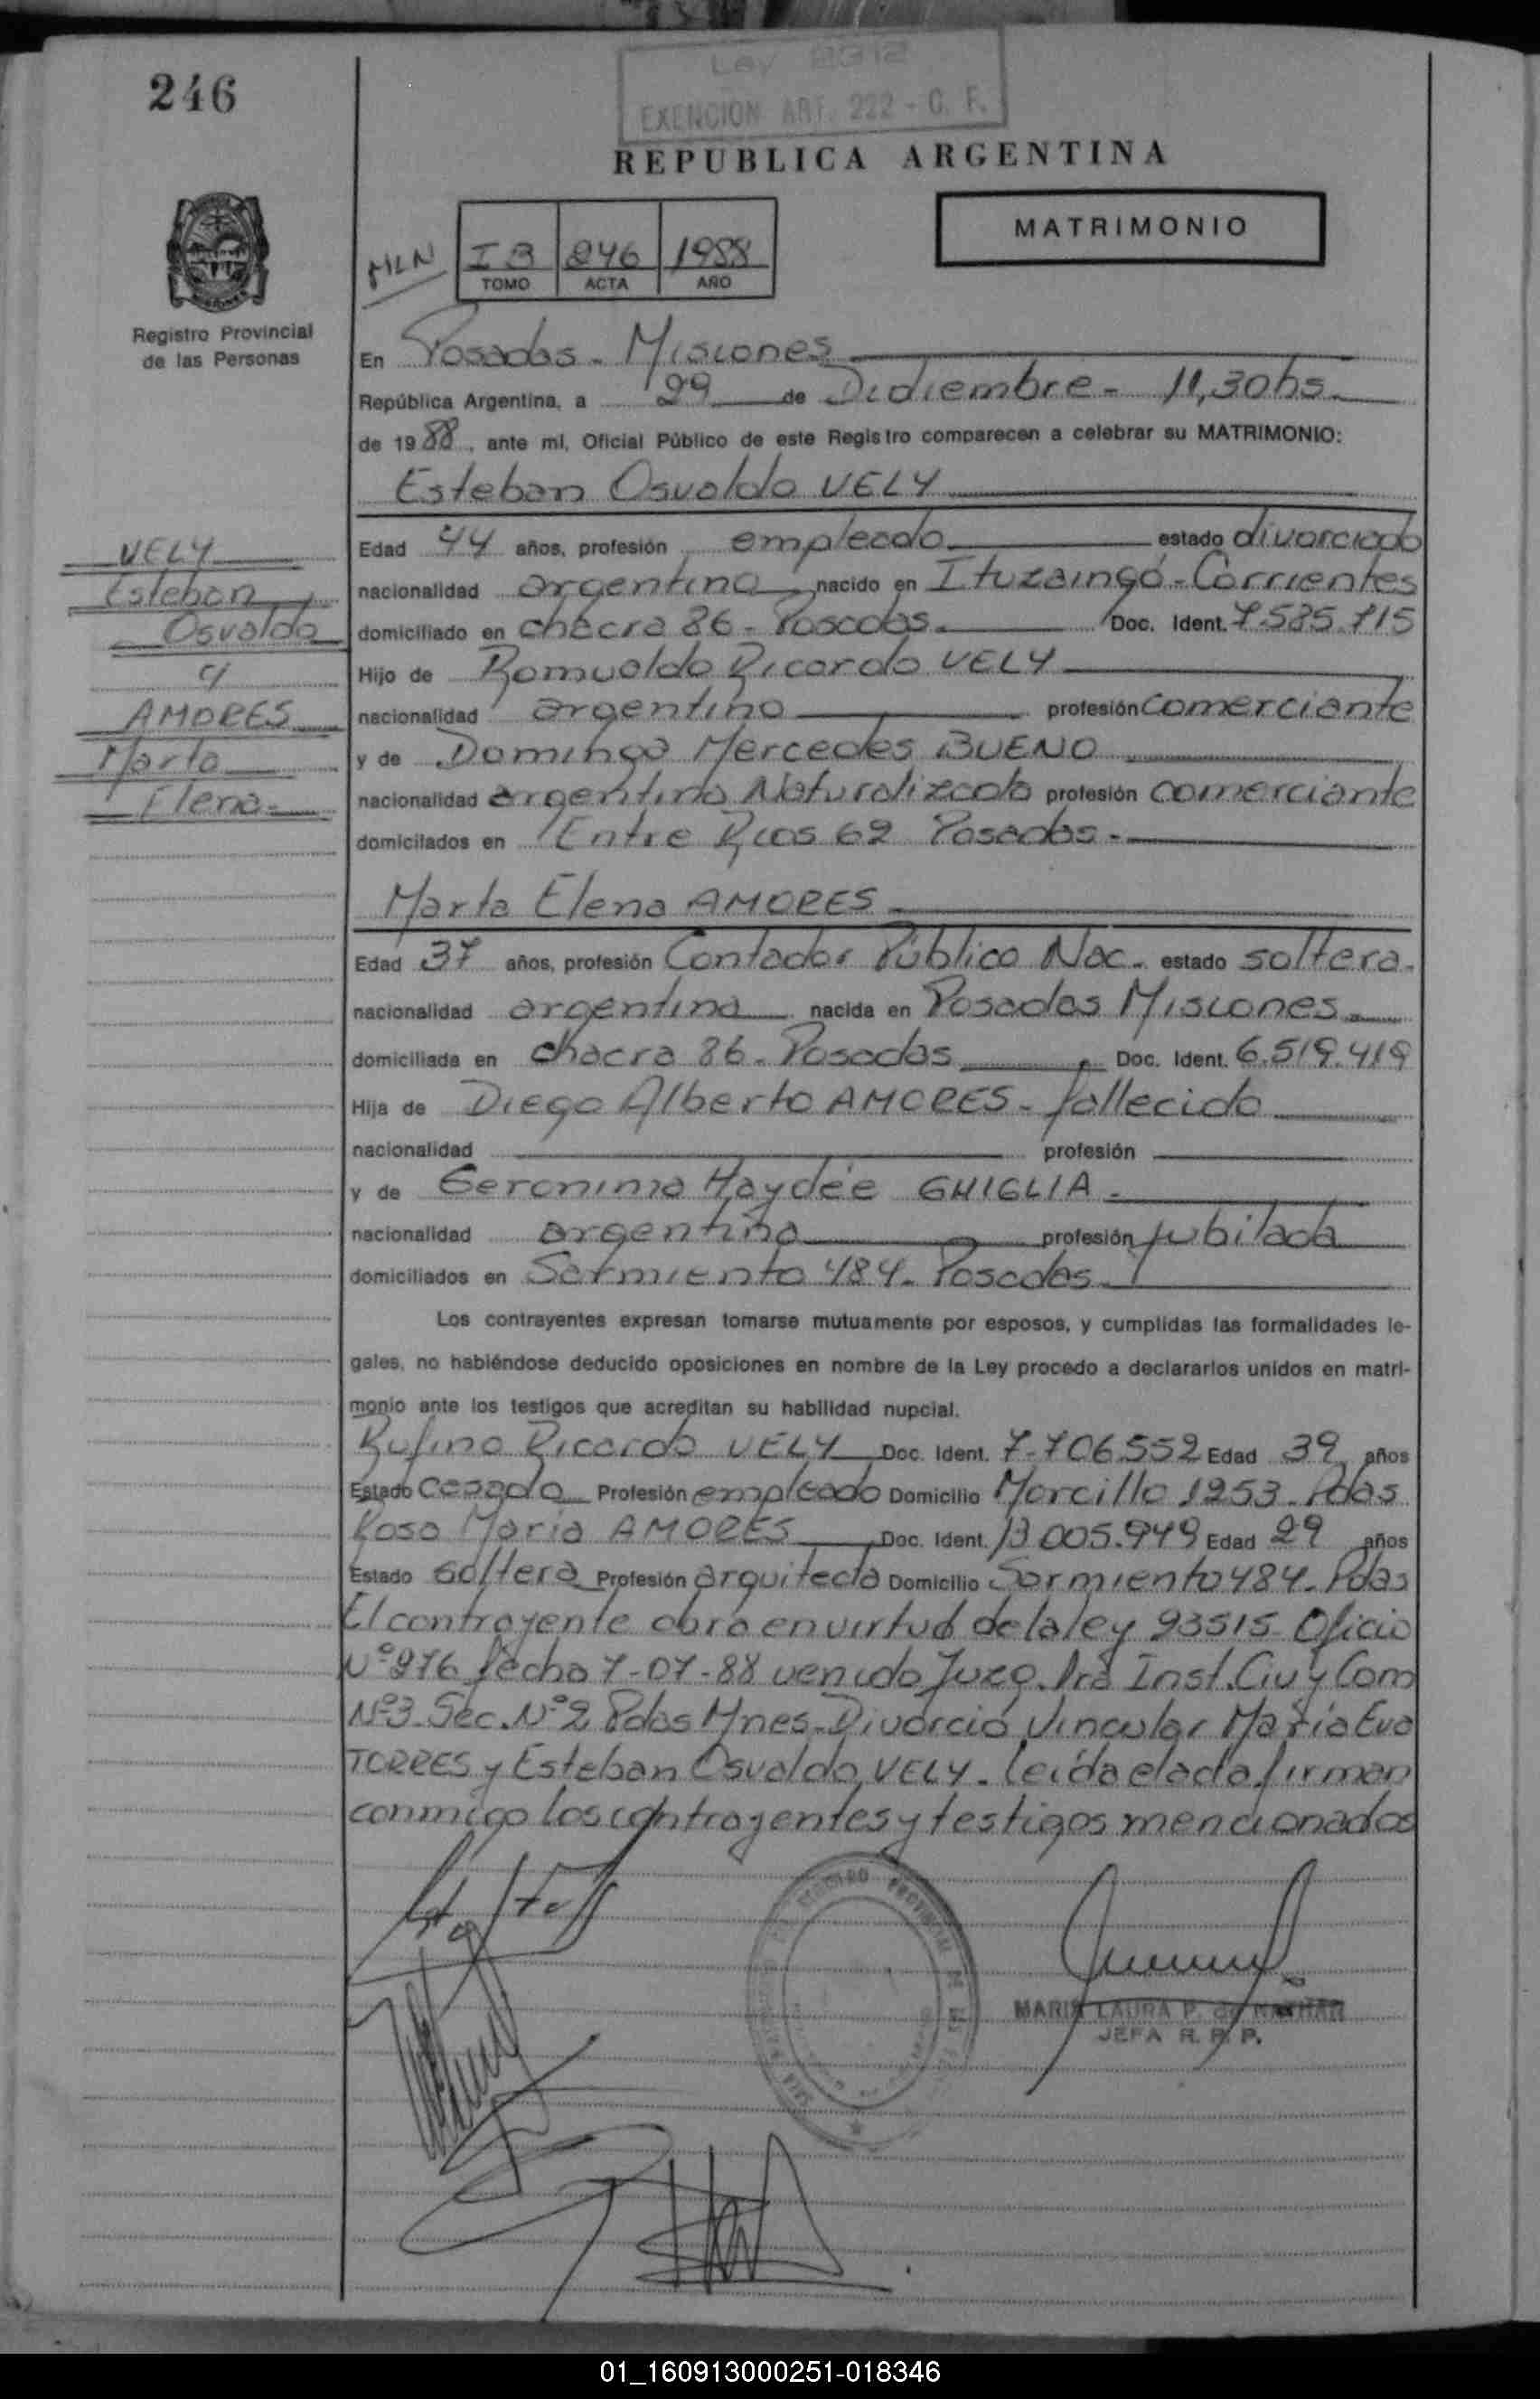 246
Ley 2312
EXENCION ART. 222 - C. F.
REPUBLICA ARGENTINA
MATRIMONIO
MLN
I B 246 1988
TOMO ACTA AÑO
Registro Provincial
de las Personas
En Posadas - Misiones
República Argentina, a 29 de Diciembre - 11,30hs.
de 1988, ante mí, Oficial Público de este Registro comparecen a celebrar su MATRIMONIO:
Esteban Osvaldo VELY
VELY
Esteban
Osvaldo
c/
AMORES
Marta
Elena-
Edad 44 años, profesión empleado estado divorciado
nacionalidad argentina nacido en Ituzaingó - Corrientes
domiciliado en chacra 86 - Posadas. Doc. Ident. 7.585.715
Hijo de Romualdo Ricardo VELY
nacionalidad argentino profesión comerciante
y de Dominga Mercedes BUENO
nacionalidad argentina Naturalizada profesión comerciante
domicilados en Entre Rios 62 Posadas -
Marta Elena AMORES
Edad 37 años, profesión Contador Público Nac. estado soltera.
nacionalidad argentina nacida en Posadas Misiones.
domiciliada en chacra 86 - Posadas Doc. Ident. 6.519.419
Hija de Diego Alberto AMORES - fallecido
nacionalidad profesión
y de Geronima Haydée GHIGLIA -
nacionalidad argentina profesión jubilada
domiciliados en Sarmiento 484. Posadas.
Los contrayentes expresan tomarse mutuamente por esposos, y cumplidas las formalidades le-
gales, no habiéndose deducido oposiciones en nombre de la Ley procedo a declararlos unidos en matri-
monio ante los testigos que acreditan su habilidad nupcial.
Rufino Ricardo VELY Doc. Ident. 7.706.552 Edad 39 años
Estado casado Profesión empleado Domicilio Morcillo 1253 - Pdas
Rosa María AMORES Doc. Ident. 13.005.949 Edad 29 años
Estado soltera Profesión arquitecta Domicilio Sarmiento 484. Pdas
El contrayente obra en virtud de la ley 93515 - Oficio
Nº 976 fecha 7-07-88 venido Juzg. 1ra Inst. Civ y Com
Nº3 - Sec. Nº2 Pdas Mnes - Divorcio Vincular María Eva
TORRES y Esteban Osvaldo VELY. leída el acta firman
conmigo los contrayentes y testigos mencionados
MARIA LAURA P. de
JEFA R. P. P.
01_160913000251-018346